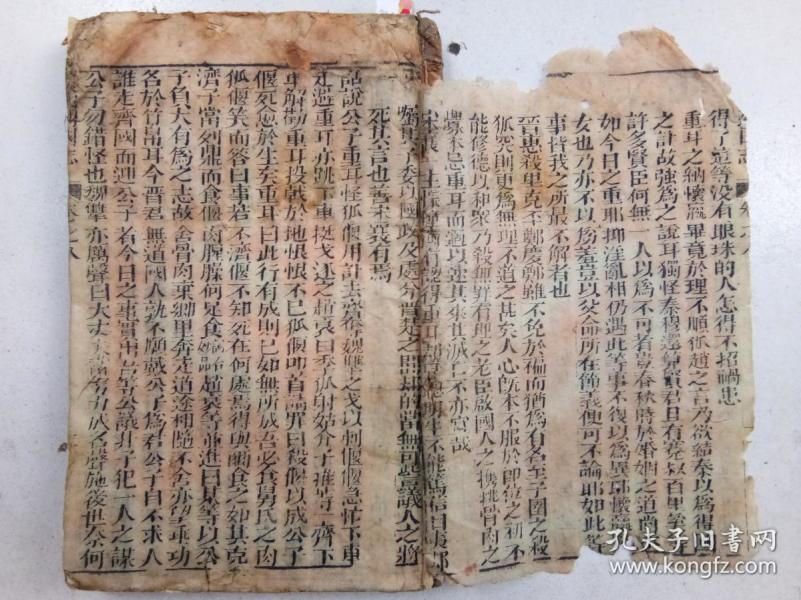 得了這等没有眼珠的人怎得不招禍患
重耳之納懷嬴畢竟於理不順狐趙之言乃欲結秦以為得國
之計故強為之說耳獨怪秦穆還算賢君且有蹇叔百里等
許多賢臣何無一人以為不可者豈春秋時於婚姻之道
如今日之重耶抑淫亂相仍遇此等事不復以為異耶懷嬴
女也乃亦不以為羞豈以父命所在節義便可不論耶如此等
事皆我之所最不解者也
晉惠殺里克丕鄭慶鄭雖不免於禍而猶為有名至子圉之殺
狐突則更為無理不道之甚矣人心既本不服於即位之初不
能修德以和眾乃殺無罪有理之老臣啟國人之攜貳骨肉之
釁本忌重耳而適以速其來其滅亡不亦宜哉
死其言也善宋襄有焉
話說公子重耳怪狐偃用計去齊奪魏犨之戈以刺偃偃急忙下車
走避重耳亦跳下車挺戈逐之趙衰臼季狐射姑介子推等一齊下
車解勸重耳投戟於地恨恨不已狐偃叩首請罪曰殺偃以成公子
偃死愈於生矣重耳曰此行有成則已如無所成吾必食舅氏之肉
狐偃笑而答曰事若不濟偃不知死在何處焉得與爾食之如其克
濟子當列鼎而食偃肉腥臊何足食趙衰等並進曰某等以公
子負大有為之志故舍骨肉棄鄉里奔走道途相隨不舍亦望垂功
名於竹帛耳今晉君無道國人孰不願戴公子為君公子自不求人
誰走齊國而迎公子者今日之事實出吾等公議非子犯一人之謀
公子勿錯怪也魏犨亦厲聲曰大丈夫當努力成名聲施後世奈何
卷之八
孔夫子旧书网
www.kongfz.com